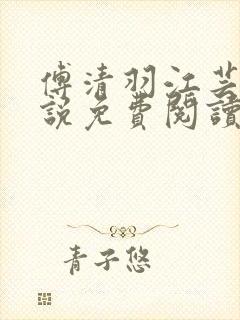 傅清羽江芸
說免費閱讀
青子悠